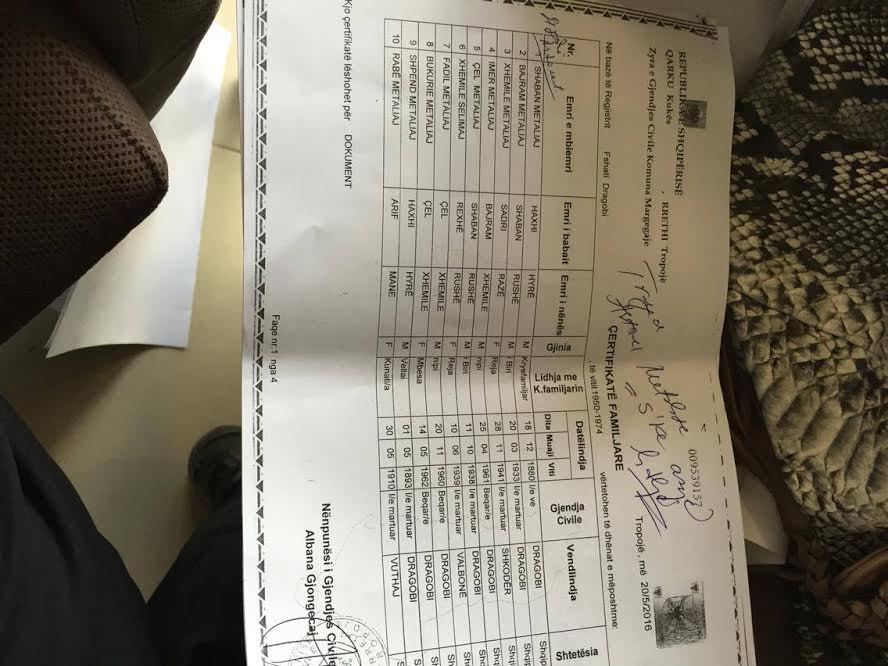 REPUBLIKA E SHQIPËRISË
QARKU Kukës , RRETHI Tropojë
Zyra e Gjendjes Civile Komuna Margegaje
009539157
Tropojë, më 20/5/2016
ÇERTIFIKATË FAMILJARE
Në bazë të Regjistrit Fshati Dragobi , të vitit 1950-1974 vërtetohen të dhënat e mëposhtme:
Nr. Emri e mbiemri Emri i babait Emri i nënës Gjinia Lidhja me K.familjarin Datëlindja Dita Muaji Viti Gjendja Civile Vendlindja Shtetësia
SHABAN METALIAJ HAXHI HYRË M Kryefamiljar 18 12 1880 I/e ve DRAGOBI Shqip
2 BAJRAM METALIAJ SHABAN RUSHË M i Biri 20 03 1933 I/e martuar DRAGOBI Shqi
3 XHEMILE METALIAJ SADRI RAZË F Reja 28 11 1941 I/e martuar SHKODËR Shqi
4 IMER METALIAJ BAJRAM XHEMILE M nipi 25 04 1961 Beqar/e DRAGOBI Shqi
5 ÇEL METALIAJ SHABAN RUSHË M i Biri 11 10 1938 I/e martuar DRAGOBI Shq
6 XHEMILE SELIMAJ REXHË RUSHË F Reja 10 08 1939 I/e martuar VALBONË Shq
7 FADIL METALIAJ ÇEL XHEMILE M nipi 20 11 1960 Beqar/e DRAGOBI Sh
8 BUKURIE METALIAJ ÇEL XHEMILE F Mbesa 14 05 1962 Beqar/e DRAGOBI Sh
9 SHPEND METALIAJ HAXHI HYRË M Vëllai 01 05 1893 I/e martuar DRAGOBI S
10 RABË METALIAJ ARIF MANE F Kunati/a 30 05 1910 I/e martuar VUTHAJ S
Kjo çertifikatë lëshohet për DOKUMENT
Nënpunësi i Gjendjes Civile
Albana Gjongecaj
Faqe nr.1 nga 4